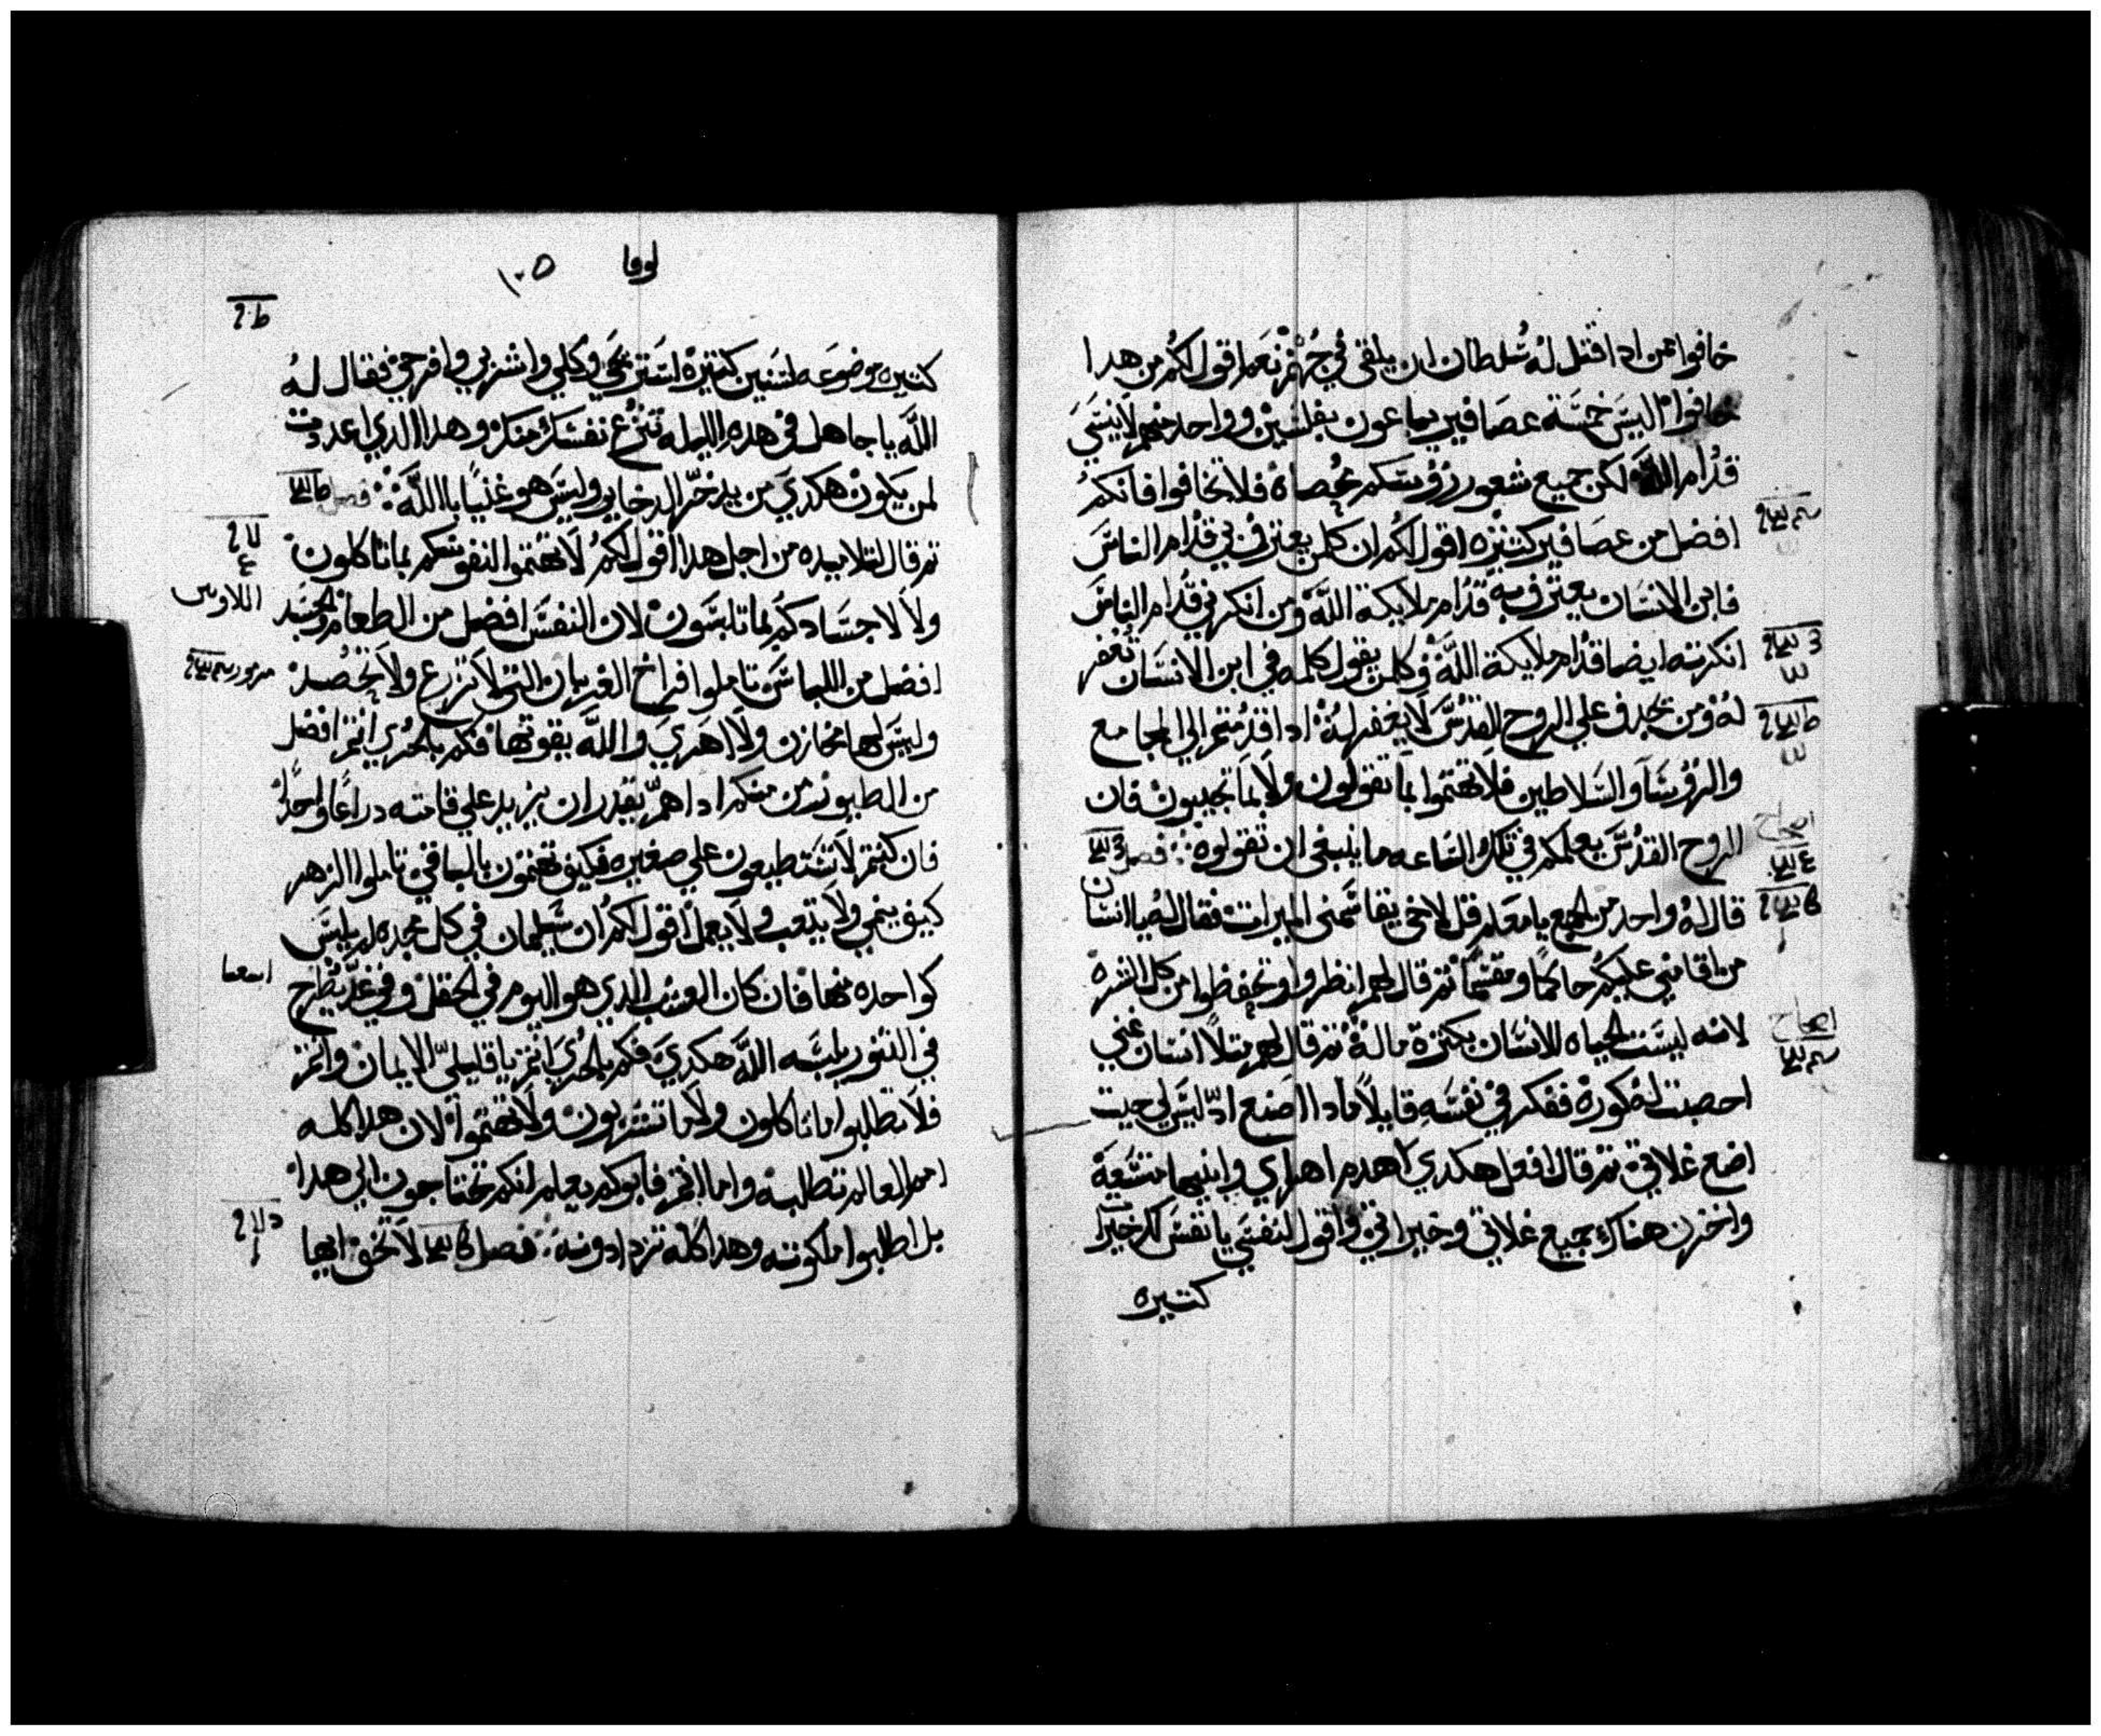 خافوا ممن ادا قتل له سُلطان ان يلقي في جُهنم نعم اقول لكم من هدا
خافوا اليسَ خمسَة عصافير يباعون بفلسَين وواحد منهم لا ينسَي
قدُام اللَّه لكن جميع شعور رؤوسَكم مُحصاه فلا تخافوا فانكمُ
افضل من عصَافير كتيره اقول لكُم ان كلمن يعترف بي قدُام الناسَ
فابن الانسَان يعترف به قدَام ملايكة اللَّه ومن انكرني قدَّام الناسَ
انكرته ايضا قدُام ملايكة اللَّه وكلمن يقول كلمه في ابن الانسَان تغفر
لهُ ومن يجدف علي الروح القدُسَ لا يغفر لهُ ادا قدُمتم الي المجامع
والروُسَآ والسَلاطين فلا تهتموا بمَا تقولون ولا بمَا تجيبون فان
الروح القدُسَ يعلمكم في تلك السَاعه ما ينبغي ان تقولوه فصل
قال لهُ واحد من الجمع يا معَلم قل لاخي يقاسَمني الميرات فقال لهُ يا انسَان
من اقامني عليكمُ حاكمًا ومقسَمًا تم قال لهم انظروا وتحفظوا من كل الشره
لانه ليسَت الحياه للانسَان بكترة مالهُ تم قال لهم متلاً انسَان غني
اخصبت لهُ كورة ففكر في نفسَه قايلاً مادا اصَنع ادّ ليسَ لي حيت
اضع غلاتي تم قال افعل هكدي اهدم اهراي وابنيها متسَعَة
واخزن هناك جميع غلاتي وخيراتي واقول لنفسَي يا نفسَ لك خيرات
كتيره
لوقا ١٠٥
كتيره موضوعَه لسَنين كتيرة استَريحَي وكلي واشربي وافرحي فقال لهُ
اللَّه يا جاهل في هده الليله تنزع نفسَك منك وهدا الدي اعددت
لمن يَكون هكدَي من يدخرّ الدخاير وليسَ هو غنيًا باللَّه فصل
تم قال لتلاميده من اجل هدا اقول لكمُ لا تهتموا لنفوسَكم بما تاكلون
ولا لاجسَادكمُ بما تلبسَون لان النفسَ افضل من الطعام والجسَد
افضل من اللباسَ تاملوا افراخ الغربان التي لا تزرع ولا تحصد
وليسَ لها مخازن ولا اهَري واللَّه يقوتها فكم بالحرُي انتم افضل
من الطيور من منكم ادا اهمّ يقدر ان يزيد علي قامته دراعًا واحداً
فان كنتم لا تسَتطيعون علي صغيره فكيف تهتمون بالباقي تاملوا الزهر
كيف ينمي ولا يتعب ولا يعمل اقول لكم ان سَليمان في كل مجده لم يلبسَ
كواحده منها فان كان العشب الدي هو اليوم في الحقل وفي غدٍ يُطرح
في التنور يلبسَه اللَّه هكدَي فكم بالحرُي انتم يا قليليّ الايمان وانتم
فلا تطلبوا ما تاكلون ولا ما تشربون ولا تهتموا لان هدا كله
امم العالم تطلبه واما انتم فابوكم يعلم انكم تحتاجون الي هدا
بل اطلبوا ملكوته وهدا كله تزدادونه فصل لا تخف ايها